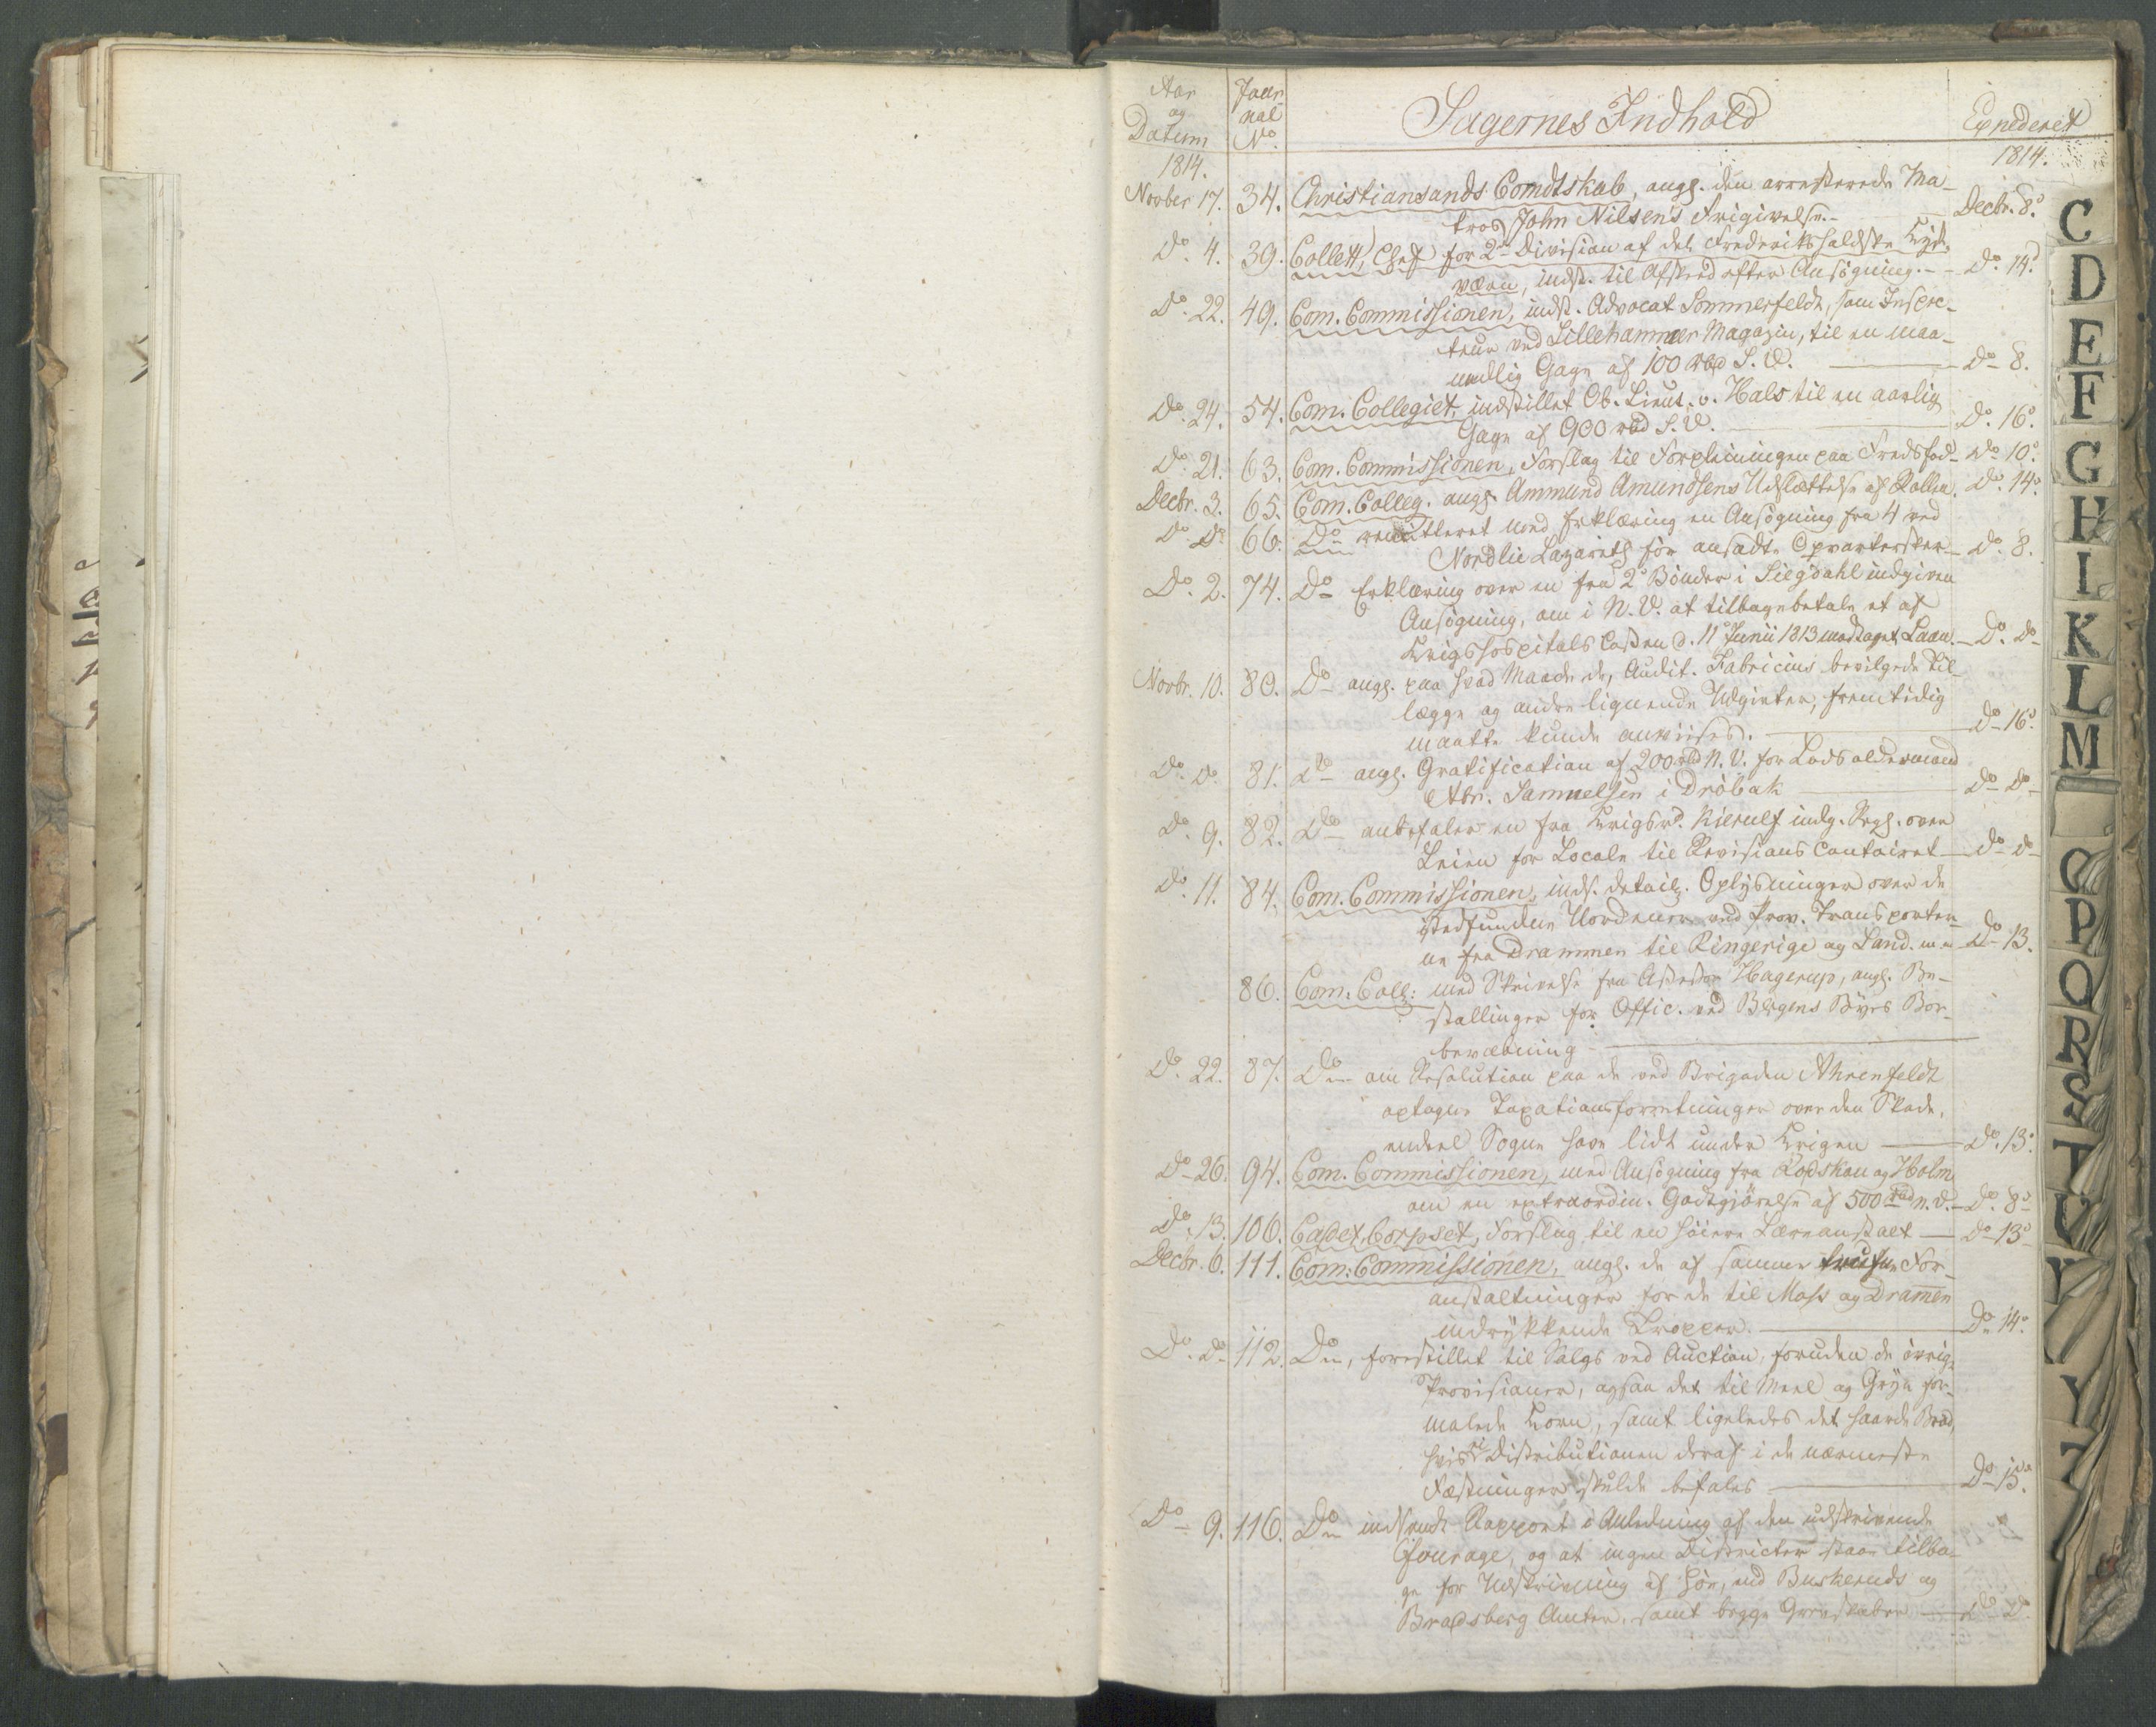 Aar
og
Datum
Jour
nal
No.
Sagernes Indhold
Expederet
1814.
1814.
Novber 17. 34. Christiansands Comdtskab, angf. den arresterede Ma-
tros John Nilsens Frigivelse. - Decbr. 8.
Do. 4. 39. Collett, Chef for 2den Division af det Frederikshaldske Kyst-
værn, indst. til Afskeed efter Ansøgning. - Do. 14.
Do. 22. 49. Com. Commissionen, indst. Advocat Sommerfeldt, som Inspec-
teur ved Lillehammer Magazin, til en maa-
nedlig Gage af 100 rbd S. V. Do 8.
Do. 24. 54. Com. Collegiet, indstillet Ob. Lieut. v. Hals til en aarlig
Gage af 900 rbd S. V. Do. 16.
Do. 21. 63. Com. Commissionen, Forslag til Forpleiningen paa Fredsfod - Do 10.
Decbr. 3. 65. Com. Colleg. angf. Ammund Amundsens Udslættelse af Rollen. Do. 14.
Do. Do. 66. Do remitteret med Erklæring en Ansøgning fra 4 ved
Nordlie Lazareth før ansadte Opvartersker - Do. 8.
Do. 2. 74. Do Erklæring over en fra 2de Bönder i Siegdahl indgiven
Ansögning, om i N. V. at tilbagebetale et af
Krigshospitals Cassen d. 11 Junii 1813 modtaget Laan. - Do. Do
Novbr. 10. 80. Do angf. paa hvad Maade de, Audit. Fabricius bevilgede Til-
lægge og andre lignende Udgivter, fremtidig
maatte kunde anviises. Do 16.
Do. Do. 81. Do angf. Gratification af 200 rbd N. V. for Lods oldermand
Abr. Samuelsen i Dröbak Do Do
Do. 9. 82. Do anbefaler en fra Krigsrd. Kierulf indg. Regn. over
Leien for Locale til Revisions Contoiret - Do Do
Do. 11. 84. Com. Commissionen, inds. detail. Oplysninger over de
stedfundne Uordener ved Prov. Transporter-
ne fra Drammen til Ringerige og Land. m. m. Do 13.
86. Com. Coll: med Skrivelse fra Assessor Hagerup, angf. Be-
stallinger for Offic. ved Bergens Byes Bor-
bevæbning
Do. 22. 87. Do om Resolution paa de ved Brigaden Ahrenfeldt
optagne Taxationsforretninger over den Skade,
endeel Sogne have lidt under Krigen Do. 13.
Do 26. 94. Com. Commissionen, med Ansøgning fra Rodskou og Holm
om en extraordin. Godtgjørelse af 500 rbd n. V. - Do. 8
Do. 13. 106. Cadet Corpset, Forslag til en høiere Læreanstalt - Do 13
Decbr. 6. 111. Com: Commissionen, angf. de af samme trufne For-
anstaltninger for de til Moss og Dramen
indrykkende Tropper. Do 14.
Do. Do. 112. Do, forestillet til Salgs ved Auction, foruden de øvrige
Provisioner, ogsaa det til Meel og Gryn for-
malede Korn, samt ligeledes det haarde Brød,
hvis ei Distributionen deraf i de nærmeste
Fæstninger skulde befales Do 15.
Do 9. 116. Do indsendt Rapport i Anledning af den udskrivende
Fourage, og at ingen Districter staae tilba-
ge for Udskrivning af Høe, end Buskeruds og
Bradsberg Amter, samt begge Grevskaber - Do Do
C
D
E
F
G
H
I
K
L
M
O
P
Q
R
S
T
U
V
Y
Z